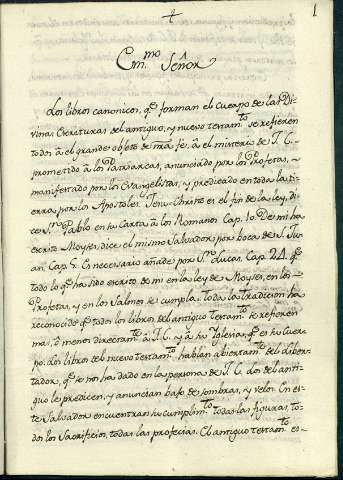 1
Em.mo Señor
Los libros canonicos, qe forman el cuerpo de las Di-
vinas Escrituras del antiguo, y nuevo testam.to se refieren
todos â el grande objeto de ntra fe, â el misterio de J. C.
prometido â los Patriarcas, anunciado por los Profetas, y
manifestado por los Evangelistas, y predicado en toda la ti-
erra por los Apostoles. Jesu-Christo es el fin de la ley, di-
ce Sn Pablo en su Carta â los Romanos Cap. 10. De mi ha
escrito Moyses, dice el mismo Salvador por boca de S. Ju-
an, Cap. 5. Es necesario añade por Sn Lucas Cap. 24. qe
todo lo qe ha sido escrito de mi en la ley de Moyses, en los
Profetas, y en los Salmos se cumpla. toda la tradicion ha
reconocido qe todos los libros del antiguo Testam.to se refieren
mas, ô menos directam.te â J. C. y â su Iglesia, qe es su Cuer-
po. Los libros del nuevo testam.to hablan abiertam.te del liber-
tador, qe se nos ha dado en la persona de J. C. los del anti-
guo le predicen, y anuncian bajo de sombras, y velos. En es-
te Salvador encuentran su cumplim.to todas las figuras, to-
dos los Sacrificios, todas las profecias. El antiguo testam.to es-